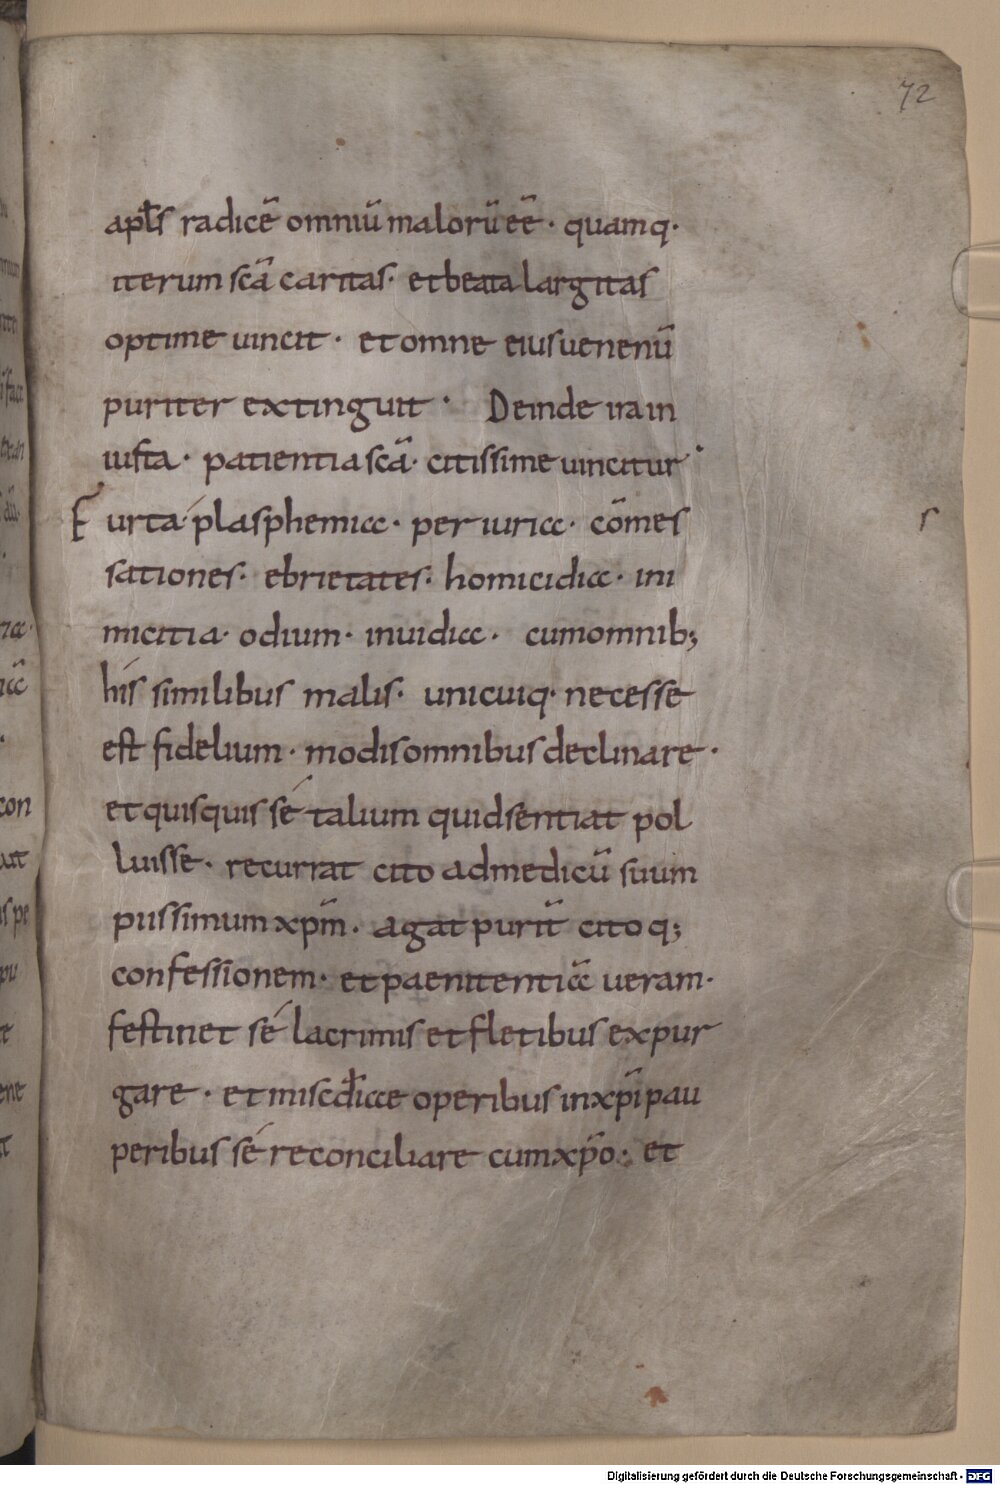 72
apl̄s radicē omniū malorū eē · quamq·
iterum scā caritas · et beata largitas
optime uincit · et omne eius uenenū
puriter extinguit · Deinde ira in
iusta · patientia scā · citissime uincitur ·
Furta plasphemia · periuria · cōmes
sationes · ebrietates · homicidia · ini
micitia · odium · inuidia · cum omnib;
his similibus malis · unicuiq· necesse
est fidelium · modis omnibus declinare ·
et quisquis sé talium quid sentiat pol
luisse · recurrat cito ad medicū suum
piissimum xp̄m · agat purit̄ cito q;
confessionem · et paenitentiā ueram ·
festinet sé lacrimis et fletibus expur
gare · et miscd̄iae operibus in xp̄i pau
peribus sé reconciliare cum xp̄o · et
Digitalisierung gefördert durch die Deutsche Forschungsgemeinschaft - DFG